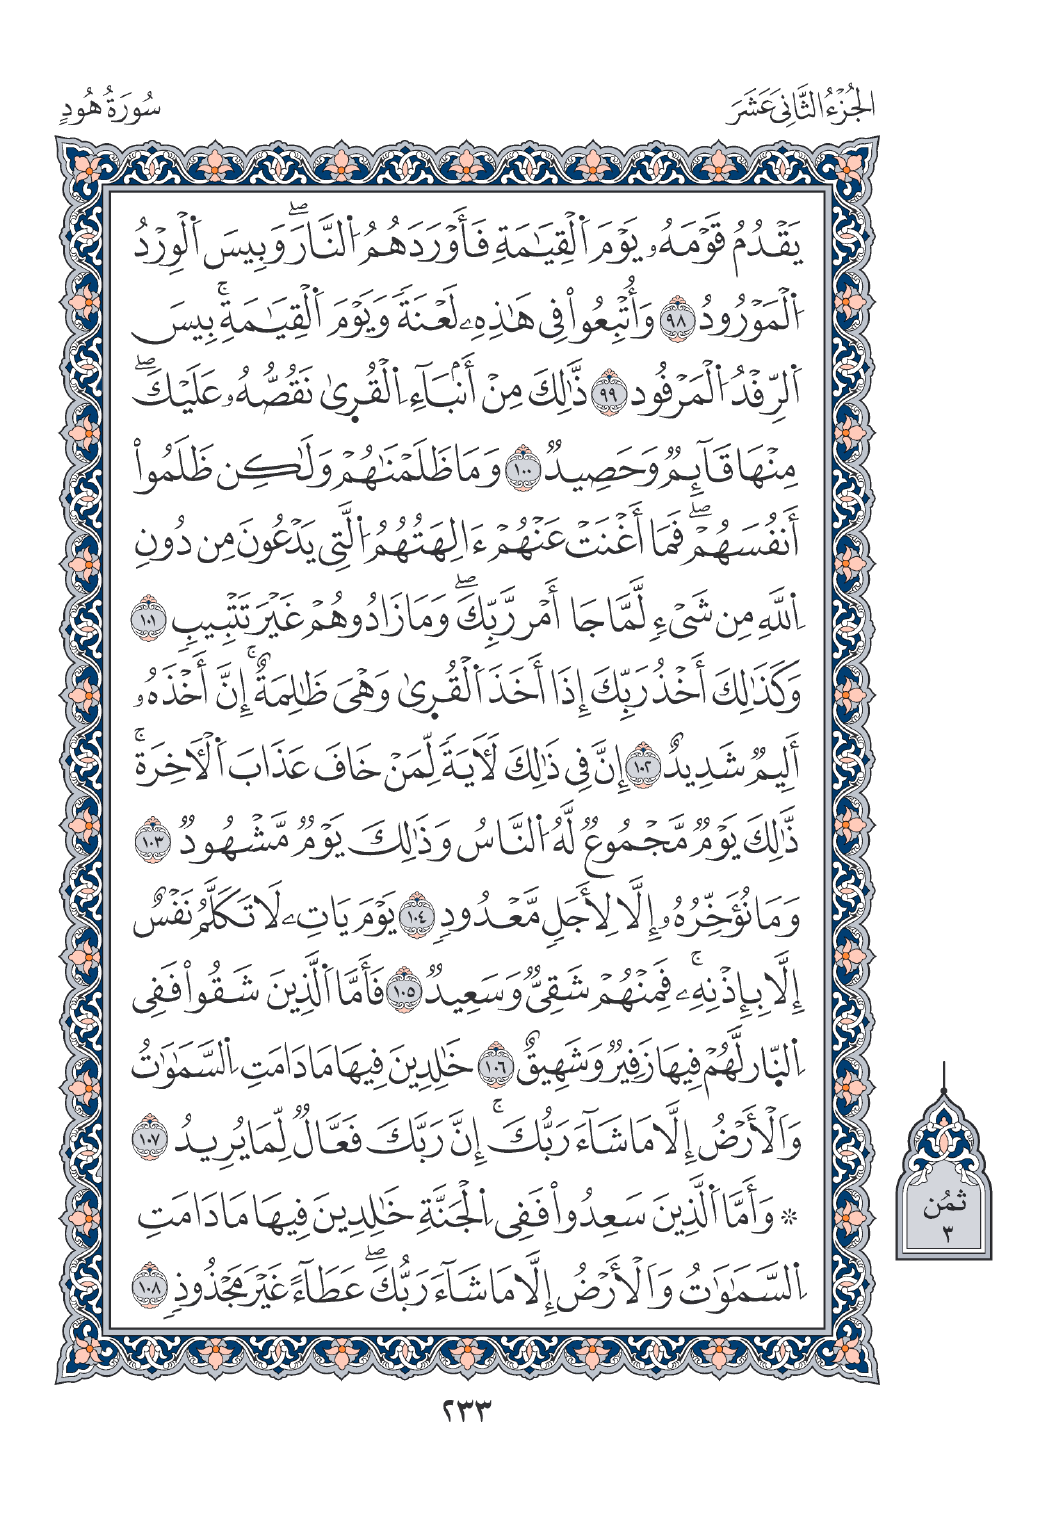 الجُزْءُ الثَّانِي عَشَرَ
سُورَةُ هُودٍ
يَقْدُمُ قَوْمَهُۥ يَوْمَ اَ۬لْقِيَٰمَةِ فَأَوْرَدَهُمُ اُ۬لنَّارَۖ وَبِيسَ اَ۬لْوِرْدُ
اُ۬لْمَوْرُودُ ٩٨ وَأُتْبِعُواْ فِى هَٰذِهِۦ لَعْنَةً وَيَوْمَ اَ۬لْقِيَٰمَةِۚ بِيسَ
اَ۬لرِّفْدُ اُ۬لْمَرْفُودُ ٩٩ ذَّٰلِكَ مِنْ أَنۢبَآءِ اِ۬لْقُرٜىٰ نَقُصُّهُۥ عَلَيْكَۖ
مِنْهَا قَآئِمٌ وَحَصِيدٌ ١٠٠ وَمَا ظَلَمْنَٰهُمْ وَلَٰكِن ظَلَمُواْ
أَنفُسَهُمْۖ فَمَا أَغْنَتْ عَنْهُمْ ءَالِهَتُهُمُ اُ۬لَّتِى يَدْعُونَ مِن دُونِ
اِ۬للَّهِ مِن شَىْءٍ لَّمَّا جَا أَمْر رَّبِّكَۖ وَمَا زَادُوهُمْ غَيْرَ تَتْبِيبٍ ١٠١
وَكَذَٰلِكَ أَخْذُ رَبِّكَ إِذَا أَخَذَ اَ۬لْقُرٜىٰ وَهْىَ ظَٰلِمَةٌۚ إِنَّ أَخْذَهُۥ
أَلِيمٌ شَدِيدٌ ١٠٢ إِنَّ فِى ذَٰلِكَ لَأٓيَةً لِّمَنْ خَافَ عَذَابَ اَ۬لْأٓخِرَةۚ
ذَّٰلِكَ يَوْمٌ مَّجْمُوعٌ لَّهُ اُ۬لنَّاسُ وَذَٰلِكَ يَوْمٌ مَّشْهُودٌ ١٠٣
وَمَا نُؤَخِّرُهُۥ إِلَّا لِأَجَلٍ مَّعْدُودٍ ١٠٤ يَوْمَ يَاتِۦ لَا تَكَلَّمُ نَفْسٌ
إِلَّا بِإِذْنِهِۦۚ فَمِنْهُمْ شَقِىٌّ وَسَعِيدٌ ١٠٥ فَأَمَّا اَ۬لَّذِينَ شَقُواْ فَفِى
اِ۬لنّٜار لَّهُمْ فِيهَا زَفِيرٌ وَشَهِيقٌ ١٠٦ خَٰلِدِينَ فِيهَا مَا دَامَتِ اِ۬لسَّمَٰوَٰتُ
وَالْأَرْضُ إِلَّا مَا شَآءَ رَبُّكَۚ إِنَّ رَبَّكَ فَعَّالٌ لِّمَا يُرِيدُ ١٠٧
۞ وَأَمَّا اَ۬لَّذِينَ سَعِدُواْ فَفِى اِ۬لْجَنَّةِ خَٰلِدِينَ فِيهَا مَا دَامَتِ
اِ۬لسَّمَٰوَٰتُ وَالْأَرْضُ إِلَّا مَا شَآءَ رَبُّكَۖ عَطَآءً غَيْرَ مَجْذُوذٍ ١٠٨
ثُمُن
٣
٢٣٣